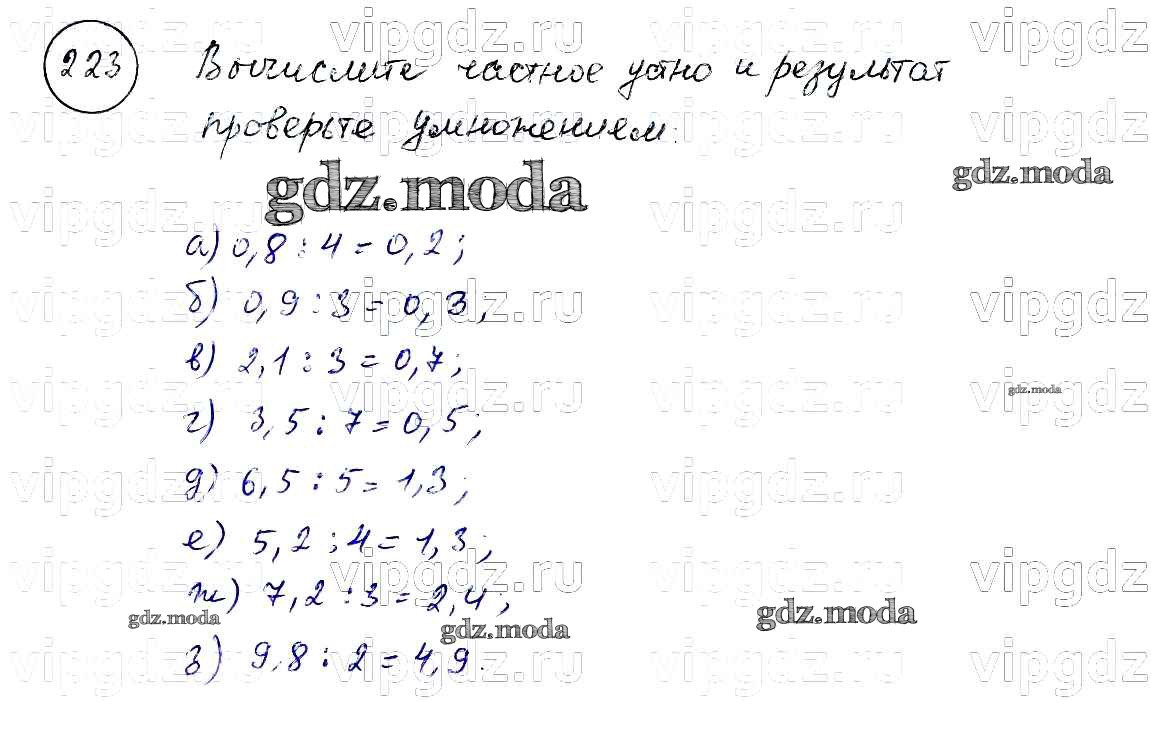 vipgdz.ru vipgdz.ru vipgdz.ru vipgdz
223 Вычислите частное устно и результат
проверьте умножением.
vipgdz.ru vipgdz.ru vipgdz.ru vipgdz
gdz.moda gdz.moda
vipgdz.ru vipgdz.ru vipgdz.ru vipgdz
а) 0,8 : 4 = 0,2;
б) 0,9 : 3 = 0,3;
vipgdz.ru vipgdz.ru vipgdz.ru vipgdz
в) 2,1 : 3 = 0,7;
vipgdz.ru vipgdz.ru vipgdz.ru vipgdz
gdz.moda
г) 3,5 : 7 = 0,5;
д) 6,5 : 5 = 1,3;
vipgdz.ru vipgdz.ru vipgdz.ru vipgdz
е) 5,2 : 4 = 1,3;
vipgdz.ru vipgdz.ru vipgdz.ru vipgdz
ж) 7,2 : 3 = 2,4;
gdz.moda gdz.moda gdz.moda
з) 9,8 : 2 = 4,9.
vipgdz.ru vipgdz.ru vipgdz.ru vipgdz